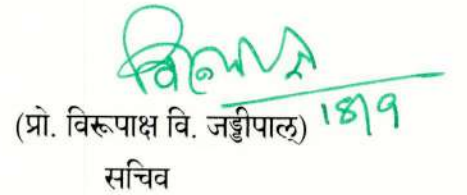 18/9
(प्रो. विरूपाक्ष वि. जड्डीपाल्)
सचिव